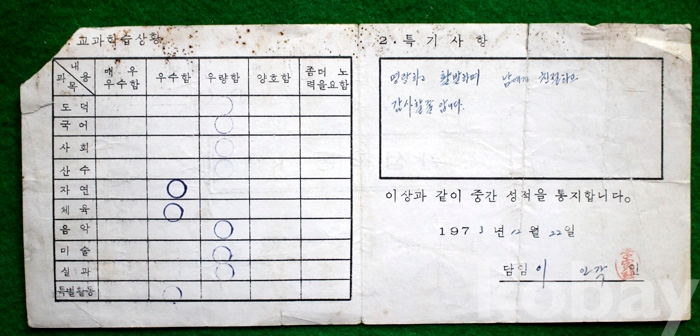 교과학습상황
내용
과목
매우 우수함 우수함 우량함 양호함 좀더 노력을요함
도덕
국어
사회
산수
자연
체육
음악
미술
실과
특별활동
2. 특기사항
명랑하고 활발하며 남에게 친절하고
감사할줄 압니다.
이상과 같이 중간 성적을 통지합니다。
1973년 12월 22일
담임 이 인
kobay